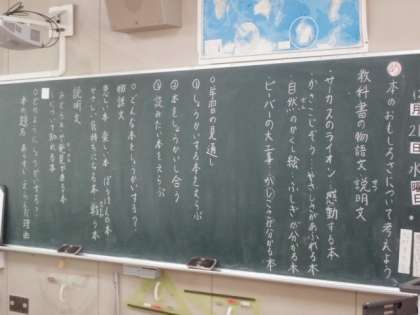 月
2
日
水
曜日
め 本のおもしろさについて考えよう
教科書の物語文 説明文
・サーカスのライオン 感動する本
・かさこじぞう…やさしさがあふれる本
・自然のかくし絵…ふしぎが分かる本
・ビーバーの大工事
○学習の見通し
①しょうかいする本をえらぶ
②本をしょうかいし合う
③読みたい本をえらぶ
○どんな本をしょうかいする?
物語文
悲しい本 楽しい本 ぼうけんの本
やさしい気持ちになる本 戦う本
説明文
○どのようにしょうかいする?
本の題名 あらすじ えらんだ理由